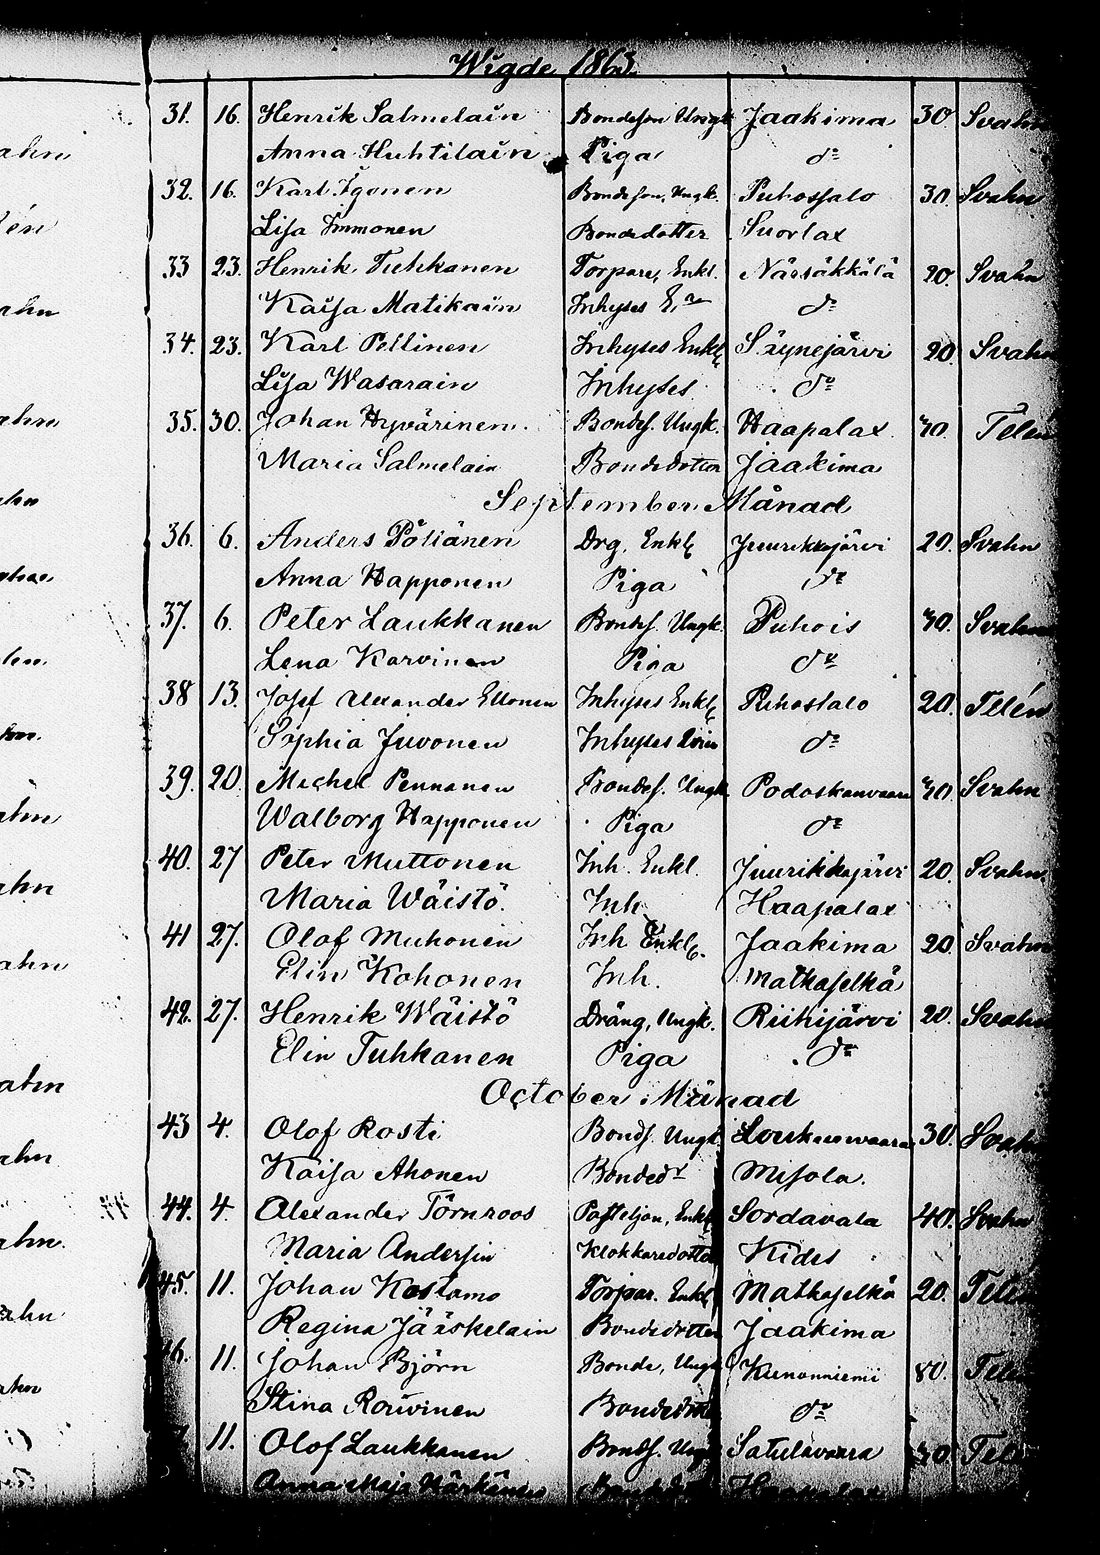 Wigde 1863.
31. 16. Henrik Salmelain Bondeson Ungk Jaakima 30. Svahn
Anna Huhtilain Piga do
32. 16. Karl Igonen Bondeson, Ungk. Puhossalo 30. Svahn
Lisa Immonen Bondedotter Suorlax
33 23. Henrik Tuhkanen Torpare, Enkl. Närsäkkälä 20. Svahn
Kaisa Matikain Inhyses do
34. 23. Karl Peltinen Inhyses Enkl Säynejärvi 20 Svahn
Lisa Wasarain Inhyses do
35. 30. Johan Hyvärinen. Bondes. Ungk. Haapalax. 30. Telén
Maria Salmelain Bondedotter Jaakima
September Månad
36. 6. Anders Pöllänen Drg, Enkl Juurikkajärvi 20. Svahn
Anna Happonen Piga do
37. 6. Peter Laukkanen Bondes. Ungk. Puhois 30. Svahn
Lena Karvinen Piga do
38 13. Josef Alexander Ellonen Inhyses Enkl Puhossalo 20. Telén
Sophia Juvonen Inhyses do
39. 20. Michel Pennanen Bondes. Ungk Podoskanvaara 30. Svahn
Walborg Happonen Piga do
40. 27 Peter Muttonen Inh. Enkl. Juurikkajärvi 20. Svahn
Maria Wäistö. Inh. Haapalax
41 27. Olof Muhonen Inh Enkl. Jaakima 20 Svahn
Elin Kohonen Inh. Matkaselkä
42. 27. Henrik Wäistö Dräng, Ungk. Riihijärvi 20. Svahn
Elin Tuhkanen Piga do
October Månad
43 4. Olof Rosti Bonds. Ungk. 30. Svahn
Kaisa Ahonen Bondedr Misola.
44. 4. Alexander Törnroos Postiljon, Enkl Sordavala 40. Svahn
Maria Andersin Klokkaredotter Kides
45. 11. Johan Kostamo Torpar. Enkl Matkaselkä 20. Telén
Regina Jääskelain Bondedotter Jaakima
46. 11. Johan Björn Bonde, Ungk Kunonniemi 80. Telén
Stina Rouvinen Bondedotter do
11. Olof Laukkanen Bonds. Ungk Satulavaara 30. Telén
Anna Maja Bondedr Haapalax